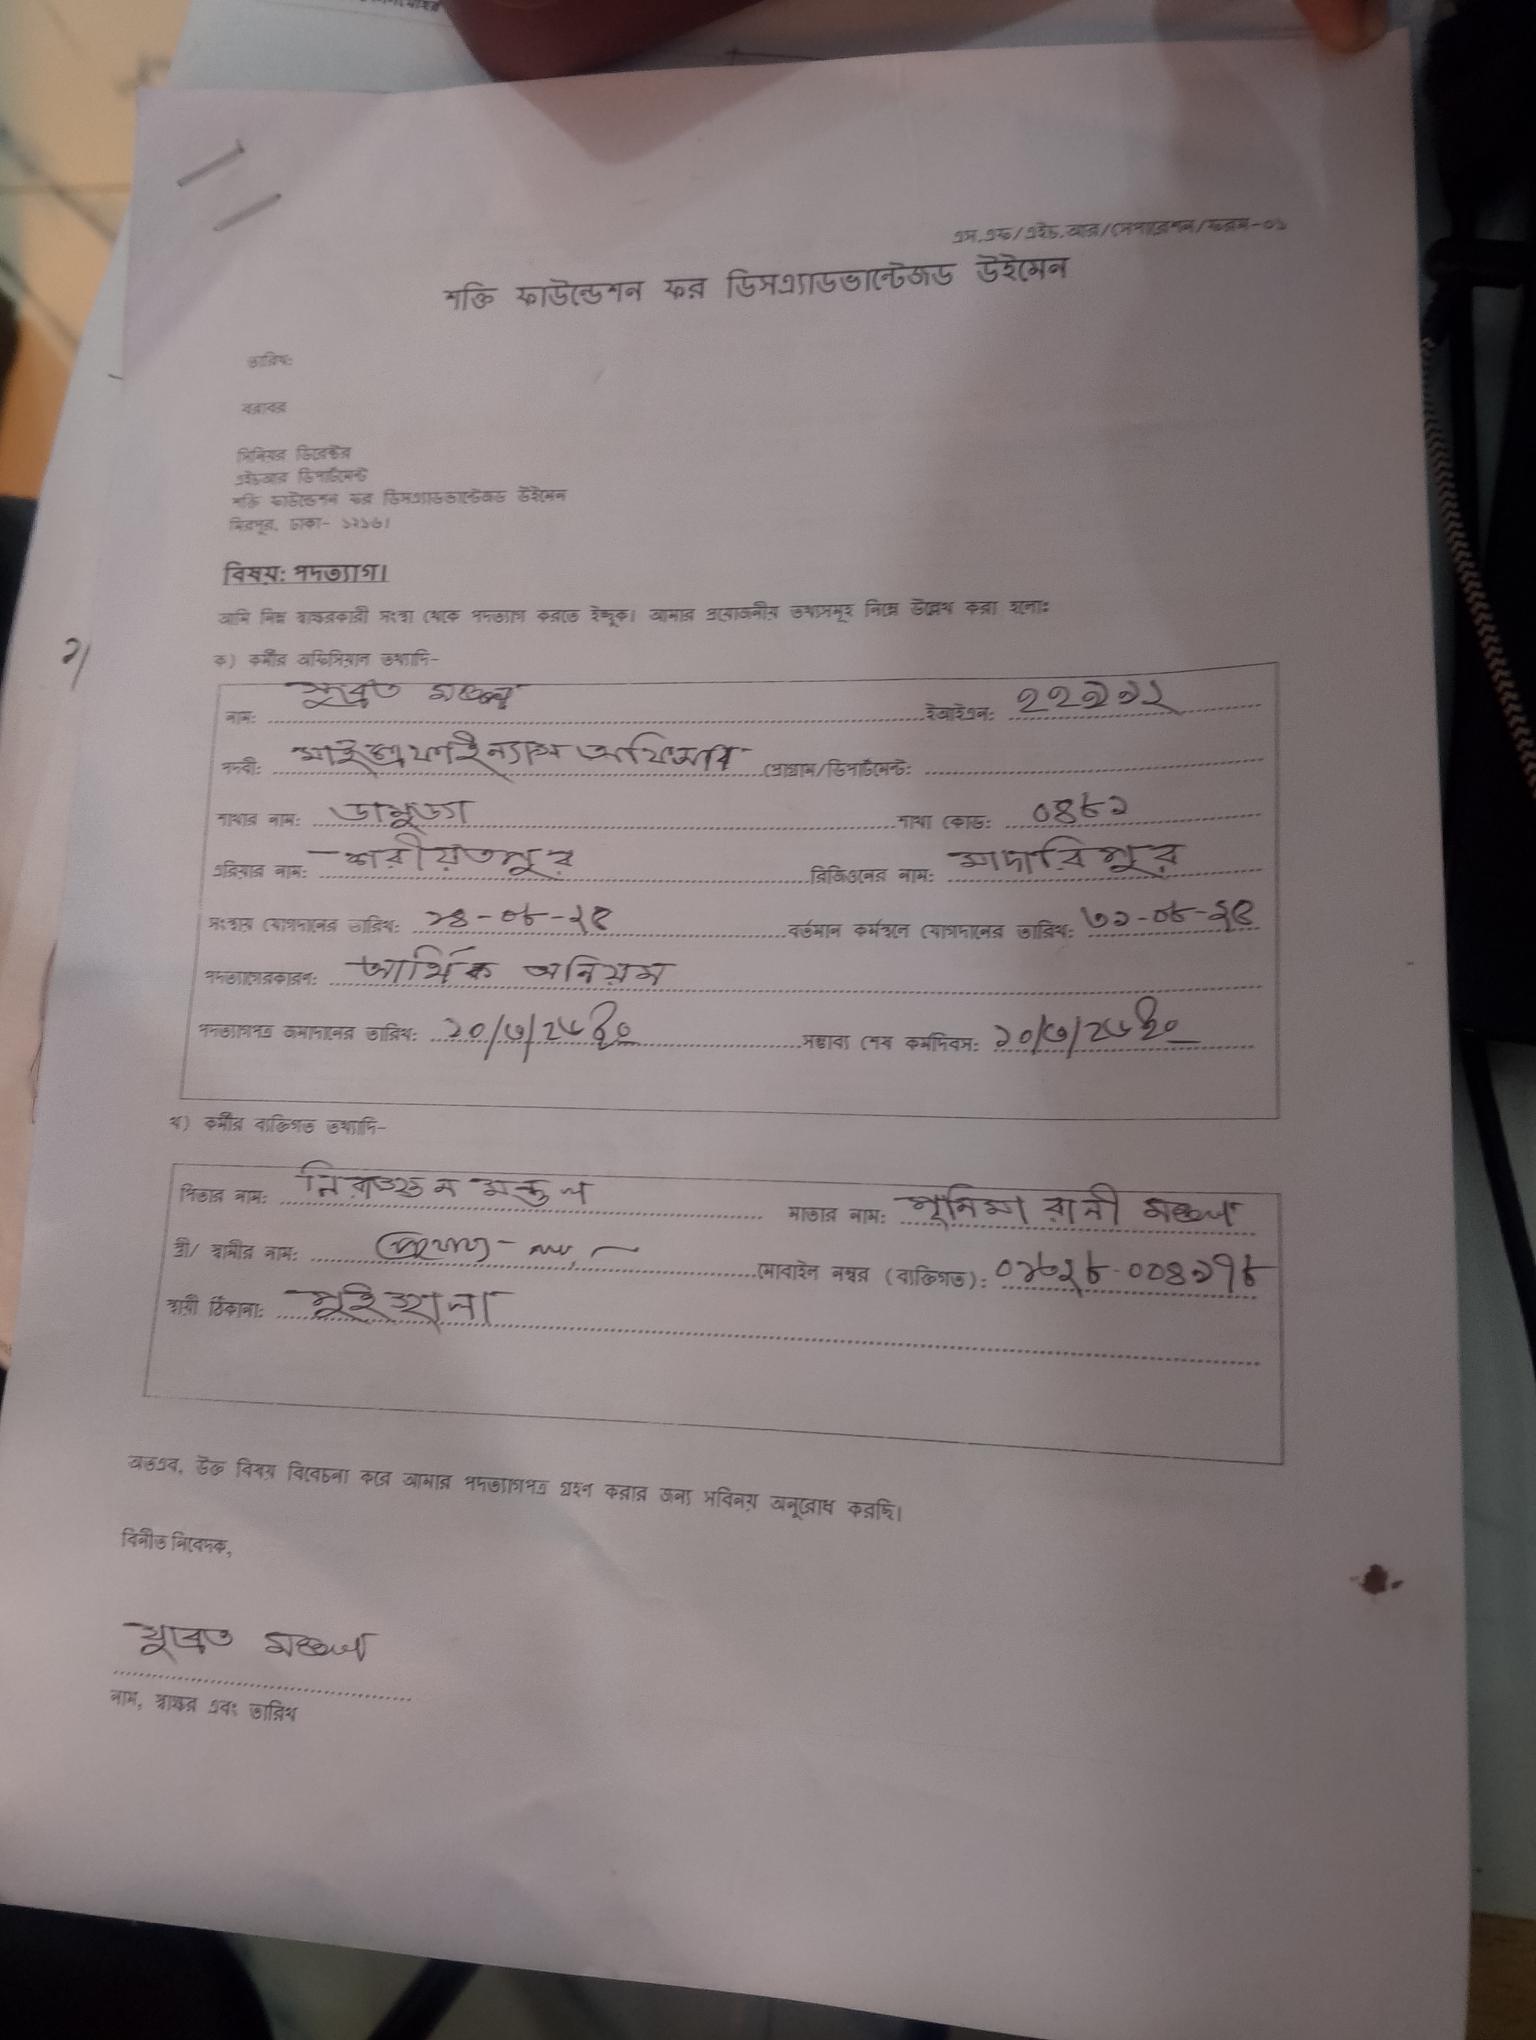 এস.এফ/এইচ.আর/সেপারেশন/ফরম-০১
শক্তি ফাউন্ডেশন ফর ডিসএ্যাডভান্টেজড উইমেন
তারিখ:
বরাবর
সিনিয়র ডিরেক্টর
এইচআর ডিপার্টমেন্ট
শক্তি ফাউন্ডেশন ফর ডিসএ্যাডভান্টেজড উইমেন
মিরপুর, ঢাকা- ১২১৬।
বিষয়: পদত্যাগ।
আমি নিম্ন স্বাক্ষরকারী সংস্থা থেকে পদত্যাগ করতে ইচ্ছুক। আমার প্রয়োজনীয় তথ্যসমূহ নিম্নে উল্লেখ করা হলো:
ক) কর্মীর অফিসিয়াল তথ্যাদি-
নাম: সুব্রত মন্ডল ইআইএন:
পদবী: মাইক্রোফাইন্যান্স অফিসার প্রোগ্রাম/ডিপার্টমেন্ট:
শাখার নাম: ডামুড্যা শাখা কোড: ০৪৮১
এরিয়ার নাম: শরীয়তপুর রিজিওনের নাম: মাদারিপুর
সংস্থায় যোগদানের তারিখ: ২৪-০৮-২৫ বর্তমান কর্মস্থলে যোগদানের তারিখ: ৩১-০৮-২৫
পদত্যাগেরকারন: আর্থিক অনিয়ম
পদত্যাগপত্র জমাদানের তারিখ: সম্ভাব্য শেষ কর্মদিবস:
খ) কর্মীর ব্যক্তিগত তথ্যাদি-
পিতার নাম: মন্ডল মাতার নাম: পূনিমা রানী মন্ডল
স্ত্রী/ স্বামীর নাম: মোবাইল নম্বর (ব্যক্তিগত):
স্থায়ী ঠিকানা:
অতএব, উক্ত বিষয় বিবেচনা করে আমার পদত্যাগপত্র গ্রহণ করার জন্য সবিনয় অনুরোধ করছি।
বিনীত নিবেদক,
সুব্রত মন্ডল
নাম, স্বাক্ষর এবং তারিখ